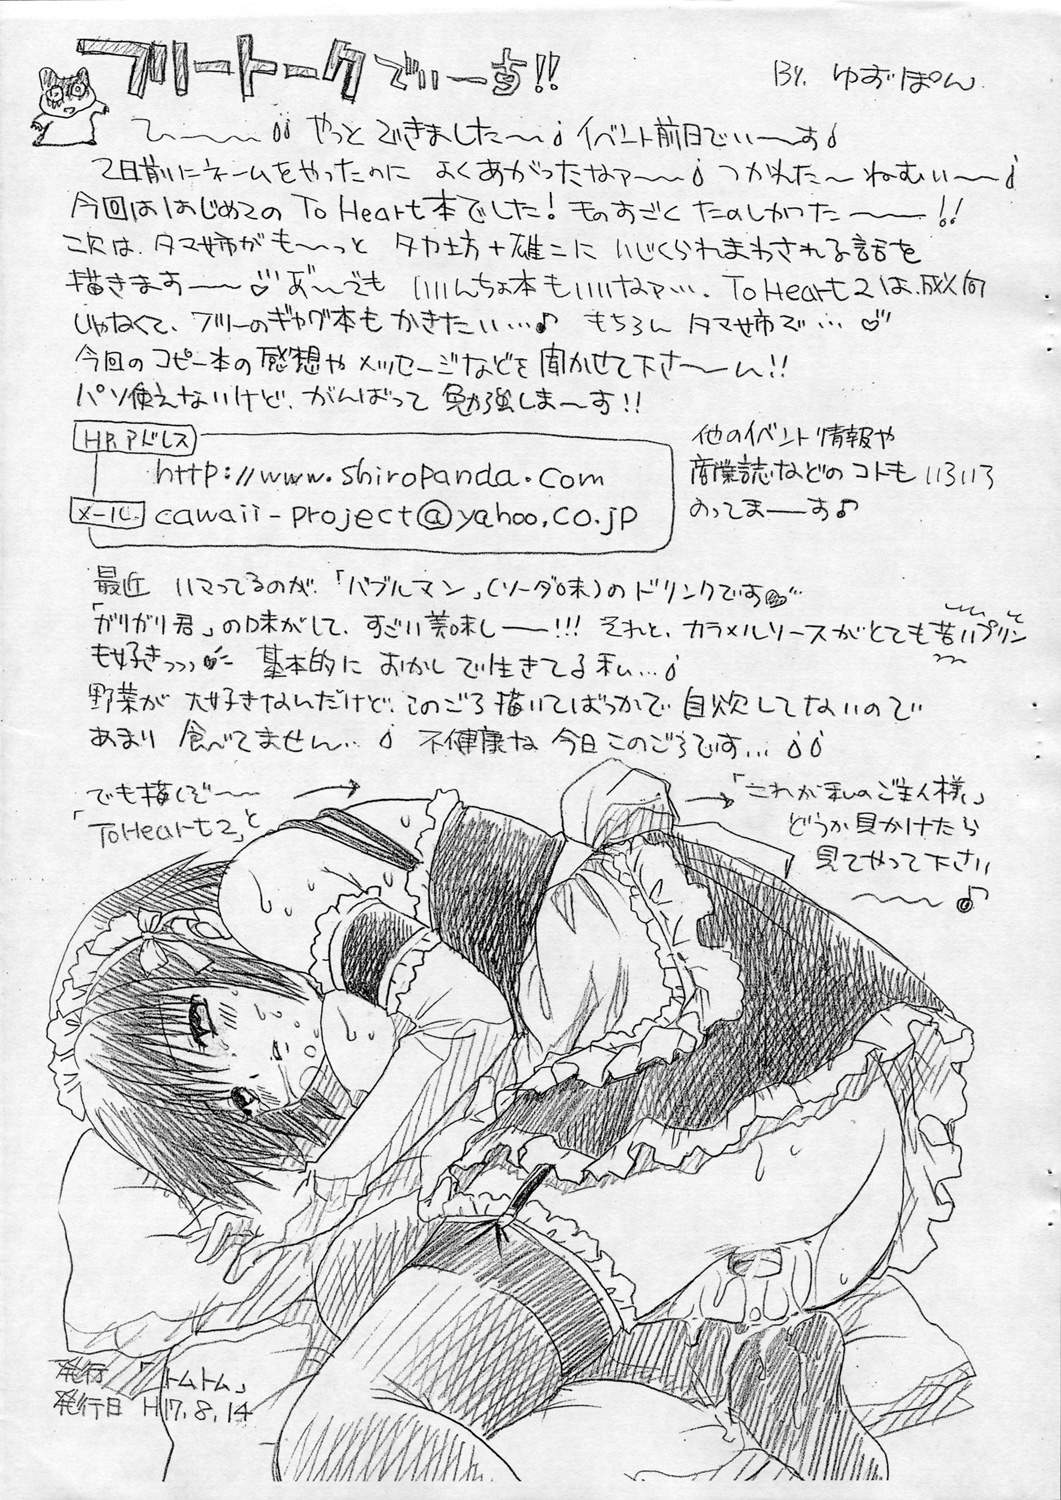 フリートークでぃーす!!
By. ゆずぽん
ひ〜〜〜 やっとできました〜〜 イベント前日でぃ〜す
2日前にネームをやったのに よくあがったなァ〜〜 つかれた〜 ねむい〜〜
今回ははじめてのTo Heart本でした! ものすごく たのしかった〜〜〜!!
次は、タマ姉がも〜〜っと タカ坊+雄二に いじくられまわされる話を
描きます〜〜♡ あ〜〜でも いいんちょ本もいいなァ…. To Heart 2は、成人向
じゃなくて、フリーのギャグ本も かきたい…♪ もちろん タマ姉で…♡
今回のコピー本の感想やメッセージなどを聞かせて下さ〜〜い!!
パソ使えないけど、がんばって 勉強しま〜す!!
HPアドレス
http://www.shiropanda.com
メール
cawaii-project@yahoo.co.jp
他のイベント情報や
商業誌などのコトも いろいろ
のってま〜〜す♪
最近 ハマってるのが、「バブルマン」(ソーダ味)のドリンクです
「ガリガリ君」の味がして、すごい美味し〜〜!!! それと、カラメルソースがとても苦いプリン
も好きっっっ 基本的に おかしで生きてる私…
野菜が 大好きなんだけど、このごろ描いてばっかで 自炊してないので
あまり 食べてません… 不健康な 今日このごろです…
でも描くぞ〜〜
「ToHeart2」と
→「これが私のご主人様」
どうか見かけたら
見てやって下さい
〜〜〜♪
発行 「トムトム」
発行日 H17.8.14